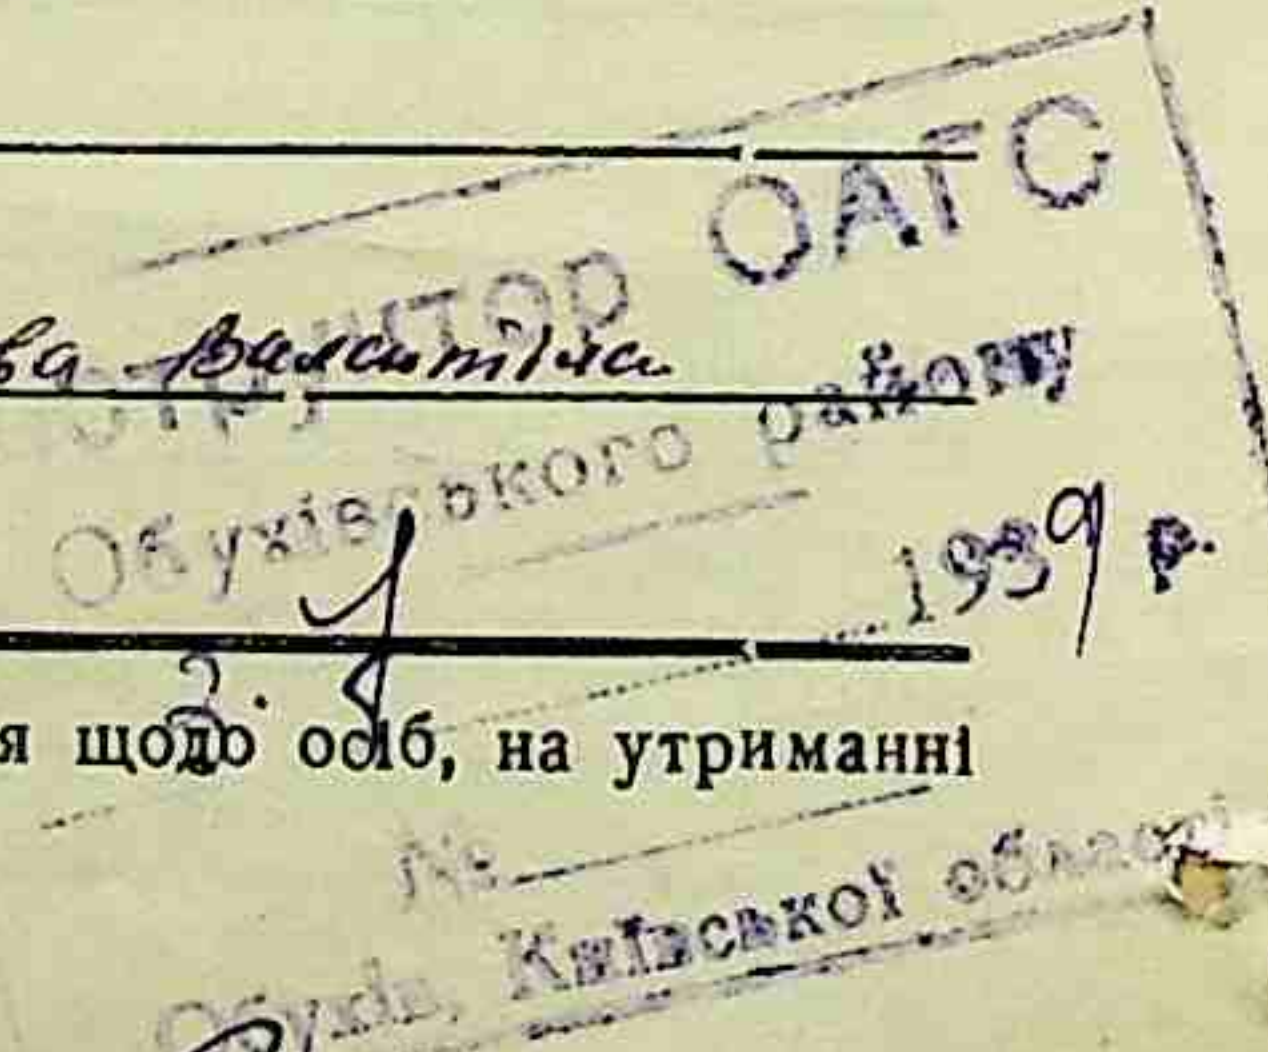 ОАГС
ва Валентина
Обухівського району
1939 р.
3.
я щодо осіб, на утриманні
№
Обухів, Київської області